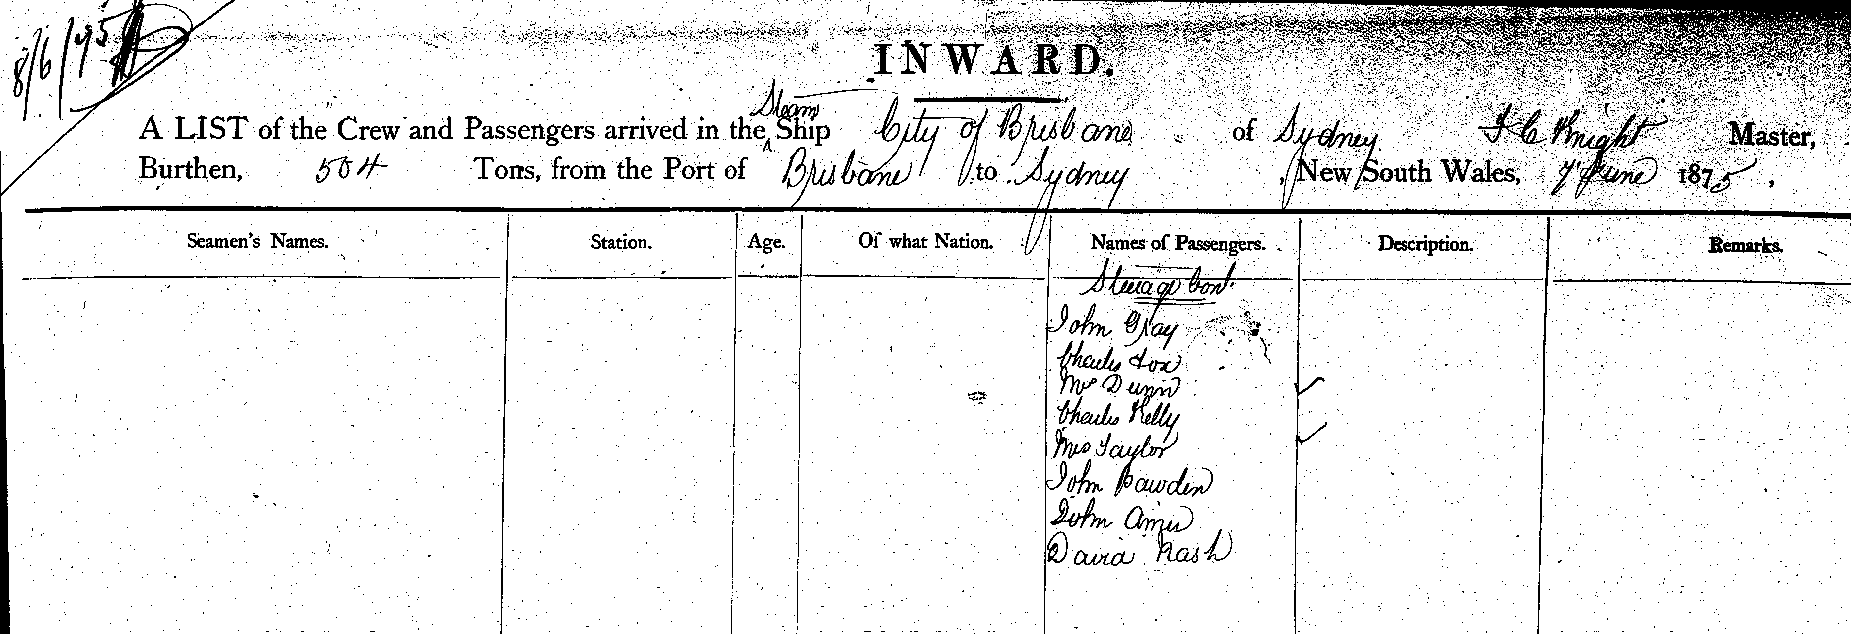 8/6/75
INWARD.
Steam
A LIST of the Crew and Passengers arrived in the ^ Ship City of Brisbane of Sydney J C Knight Master,
Burthen, 504 Tons, from the Port of Brisbane to Sydney, New South Wales, 7 June 1875,
Seamen's Names. Station. Age. Of what Nation. Names of Passengers. Description. Remarks.
Steerage Cont.
John Gray
Charles Fox
Mrs Dunn ✓
Charles Kelly
Mrs Taylor ✓
John Bawden
John
David Nash